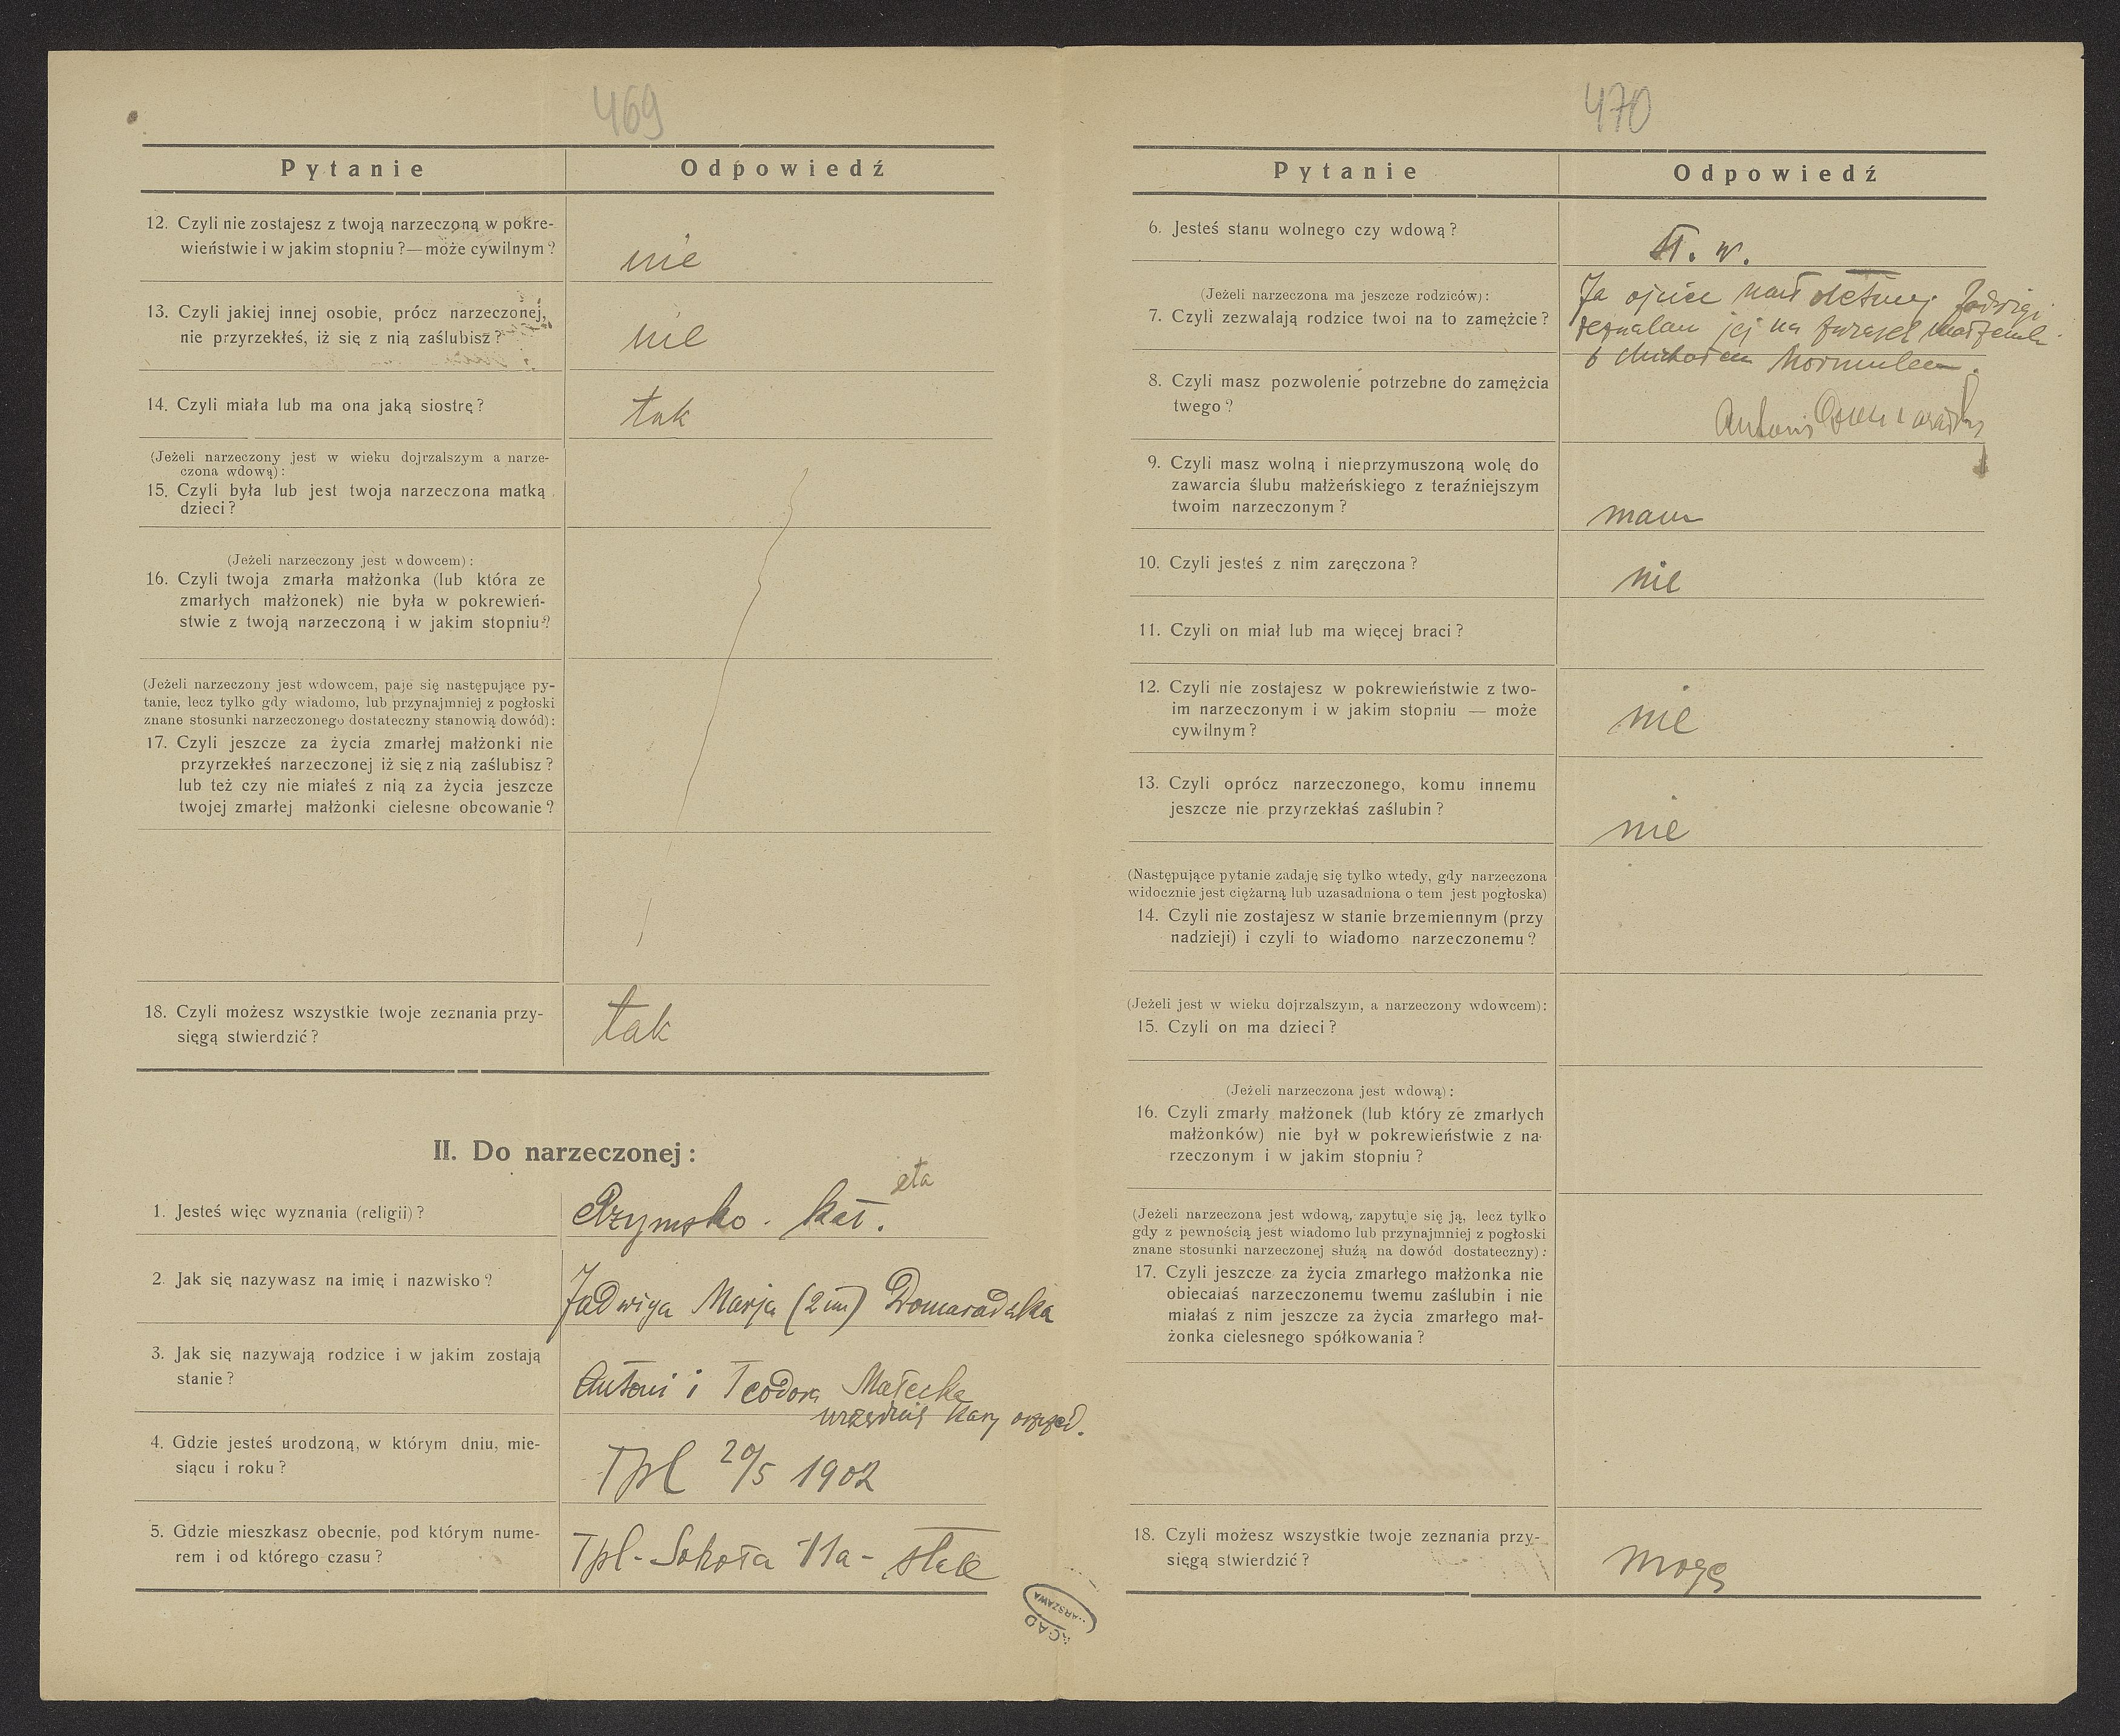 469
Pytanie
Odpowiedź
12. Czyli nie zostajesz z twoją narzeczoną w pokre-
wieństwie i w jakim stopniu ? — może cywilnym ?
nie
13. Czyli jakiej innej osobie, prócz narzeczonej,
nie przyrzekłeś, iż się z nią zaślubisz ?
nie
14. Czyli miała lub ma ona jaką siostrę ?
tak
(Jeżeli narzeczony jest w wieku dojrzalszym a narze-
czona wdową) :
15. Czyli była lub jest twoja narzeczona matką
dzieci ?
(Jeżeli narzeczony jest wdowcem) :
16. Czyli twoja zmarła małżonka (lub która ze
zmarłych małżonek) nie była w pokrewień-
stwie z twoją narzeczoną i w jakim stopniu ?
(Jeżeli narzeczony jest wdowcem, paje się następujące py-
tanie, lecz tylko gdy wiadomo, lub przynajmniej z pogłoski
znane stosunki narzeczonego dostateczny stanowią dowód) :
17. Czyli jeszcze za życia zmarłej małżonki nie
przyrzekłeś narzeczonej iż się z nią zaślubisz ?
lub też czy nie miałeś z nią za życia jeszcze
twojej zmarłej małżonki cielesne obcowanie ?
18. Czyli możesz wszystkie twoje zeznania przy-
sięgą stwierdzić ?
tak
II. Do narzeczonej :
1. Jesteś więc wyznania (religii) ?
Rzymsko. kat.
2. Jak się nazywasz na imię i nazwisko ?
Jadwiga Marja (2 im) Domaradzka
3. Jak się nazywają rodzice i w jakim zostają
stanie ?
Antoni i Teodora Małecka
4. Gdzie jesteś urodzoną, w którym dniu, mie-
siącu i roku ?
Tpl 20/5 1902
5. Gdzie mieszkasz obecnie, pod którym nume-
rem i od którego czasu ?
Tpl - Sokoła 11a - stale
470
Pytanie
Odpowiedź
6. Jesteś stanu wolnego czy wdową ?
st. w.
(Jeżeli narzeczona ma jeszcze rodziców) :
7. Czyli zezwalają rodzice twoi na to zamężcie ?
Ja ojciec małoletniej Jadwigi
zezwalam jej na związek
z Michałem
8. Czyli masz pozwolenie potrzebne do zamężcia
twego ?
Antoni Domaradzki
9. Czyli masz wolną i nieprzymuszoną wolę do
zawarcia ślubu małżeńskiego z teraźniejszym
twoim narzeczonym ?
mam
10. Czyli jesteś z nim zaręczona ?
nie
11. Czyli on miał lub ma więcej braci ?
12. Czyli nie zostajesz w pokrewieństwie z two-
im narzeczonym i w jakim stopniu — może
cywilnym ?
nie
13. Czyli oprócz narzeczonego, komu innemu
jeszcze nie przyrzekłaś zaślubin ?
nie
(Następujące pytanie zadaję się tylko wtedy, gdy narzeczona
widocznie jest ciężarną lub uzasadniona o tem jest pogłoska)
14. Czyli nie zostajesz w stanie brzemiennym (przy
nadzieji) i czyli to wiadomo narzeczonemu ?
(Jeżeli jest w wieku dojrzalszym, a narzeczony wdowcem) :
15. Czyli on ma dzieci ?
(Jeżeli narzeczona jest wdową) :
16. Czyli zmarły małżonek (lub który ze zmarłych
małżonków) nie był w pokrewieństwie z na-
rzeczonym i w jakim stopniu ?
(Jeżeli narzeczona jest wdową, zapytuje się ją, lecz tylko
gdy z pewnością jest wiadomo lub przynajmniej z pogłoski
znane stosunki narzeczonej służą na dowód dostateczny) :
17. Czyli jeszcze za życia zmarłego małżonka nie
obiecałaś narzeczonemu twemu zaślubin i nie
miałaś z nim jeszcze za życia zmarłego mał-
żonka cielesnego spółkowania ?
18. Czyli możesz wszystkie twoje zeznania przy-
sięgą stwierdzić ?
mogę
AGAD
WARSZAWA